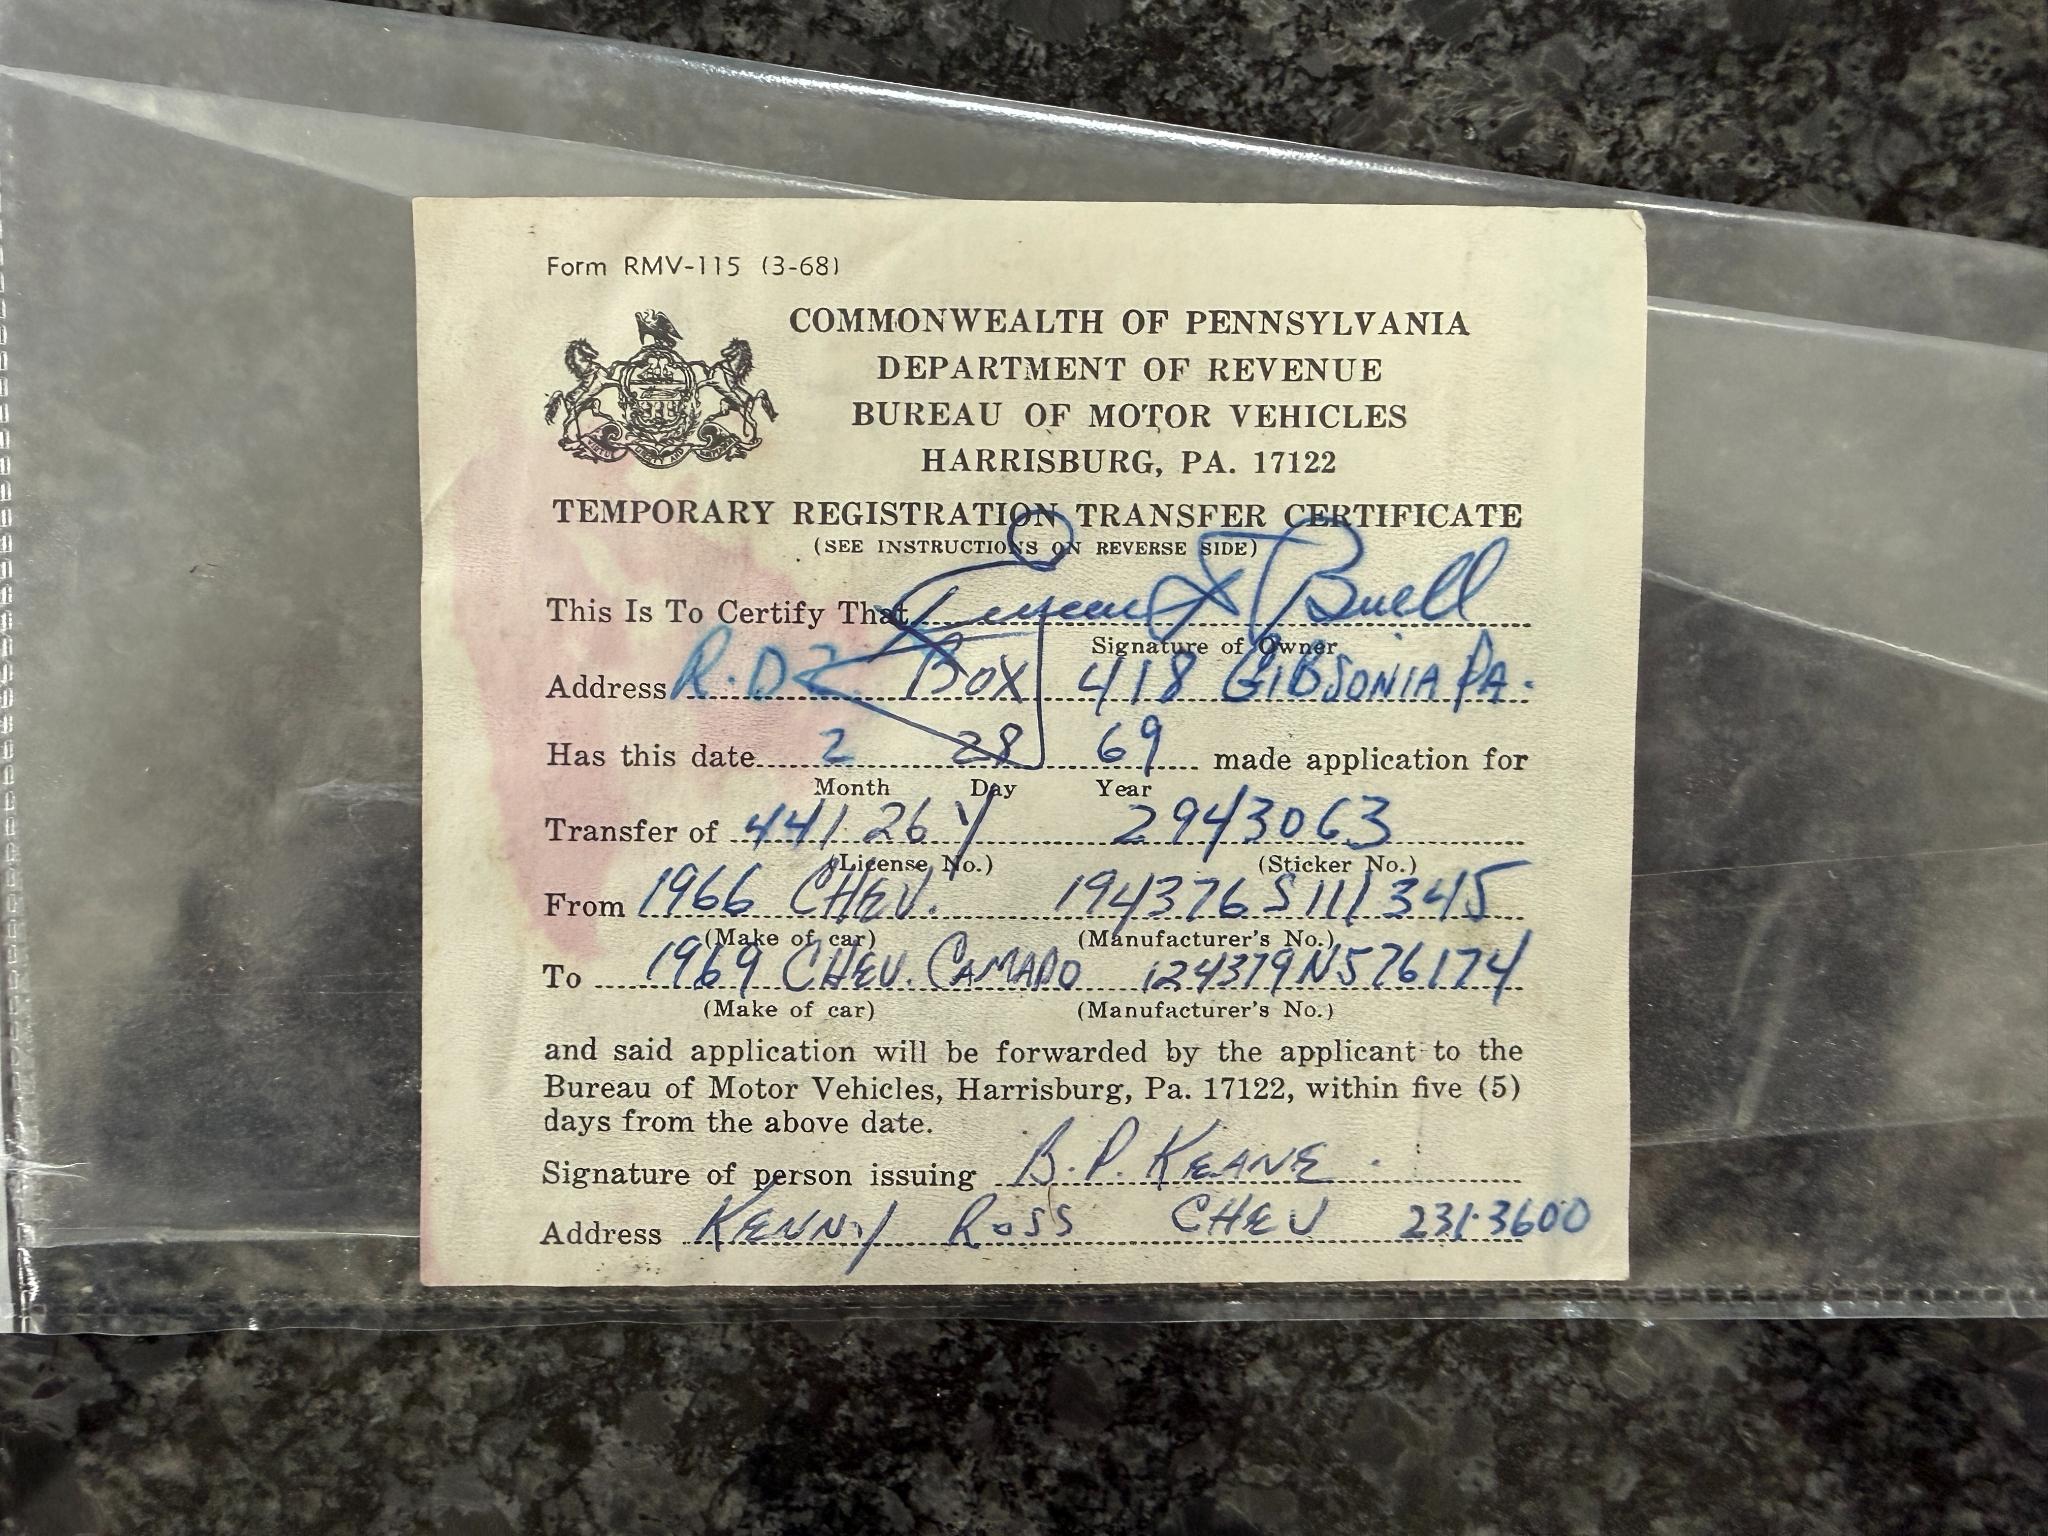 Form RMV-115 (3-68)
COMMONWEALTH OF PENNSYLVANIA
DEPARTMENT OF REVENUE
BUREAU OF MOTOR VEHICLES
HARRISBURG, PA. 17122
TEMPORARY REGISTRATION TRANSFER CERTIFICATE
(SEE INSTRUCTIONS ON REVERSE SIDE)
This Is To Certify That Buell
Signature of Owner
Address R.D 2 BOX 418 GIBSONIA PA.
Has this date 2 28 69 made application for
Month Day Year
Transfer of 441 26 Y 2943063
(License No.) (Sticker No.)
From 1966 CHEV. 194376S111345
(Make of car) (Manufacturer's No.)
To 1969 CHEV. CAMARO 124379N576174
(Make of car) (Manufacturer's No.)
and said application will be forwarded by the applicant to the
Bureau of Motor Vehicles, Harrisburg, Pa. 17122, within five (5)
days from the above date.
Signature of person issuing B.P. KEANE
Address KENNY ROSS CHEV 231-3600